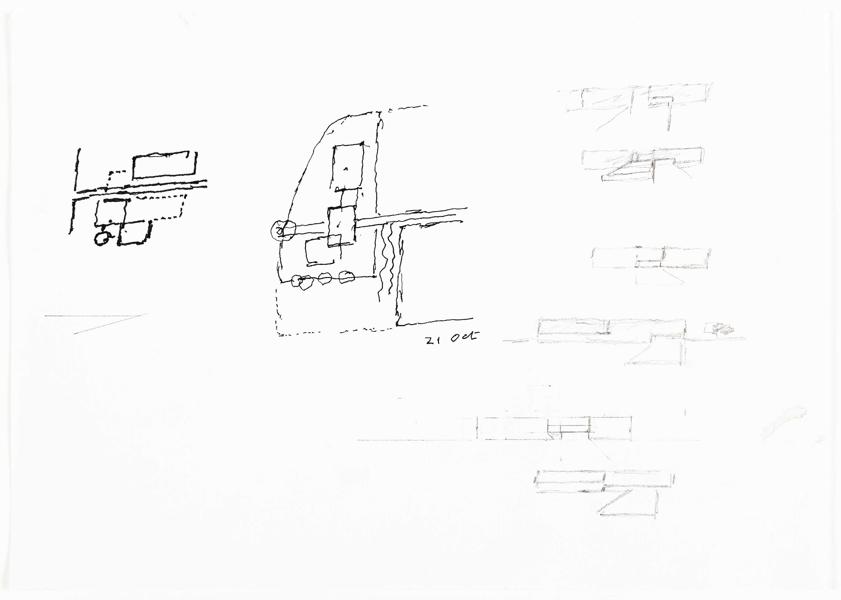 21 Oct